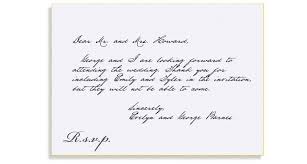 Dear Mr. and Mrs. Howard,
George and I are looking forward to
attending the wedding. Thank you for
including Emily and Tyler in the invitation,
but they will not be able to come.
Sincerely,
Evelyn and George Barnes
R.s.v.p.